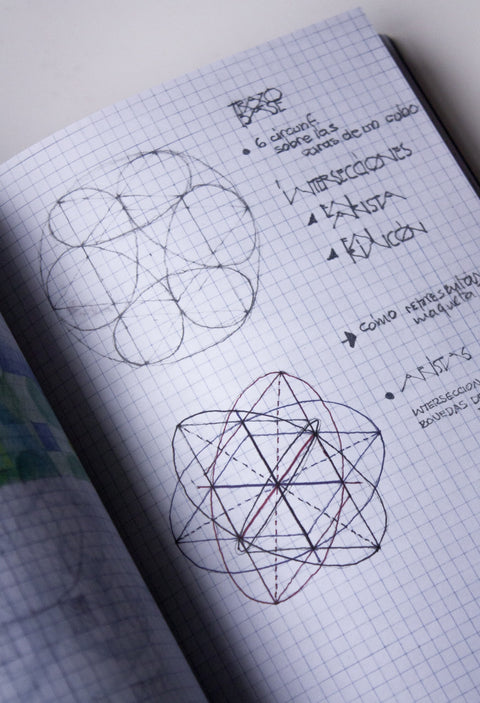 TRAZO
BASE
• 6 circunf.
sobre las
caras de un cubo
INTERSECCIONES
como representar
maqueta
• ARISTAS
INTERSECCION
BOVEDAS DE